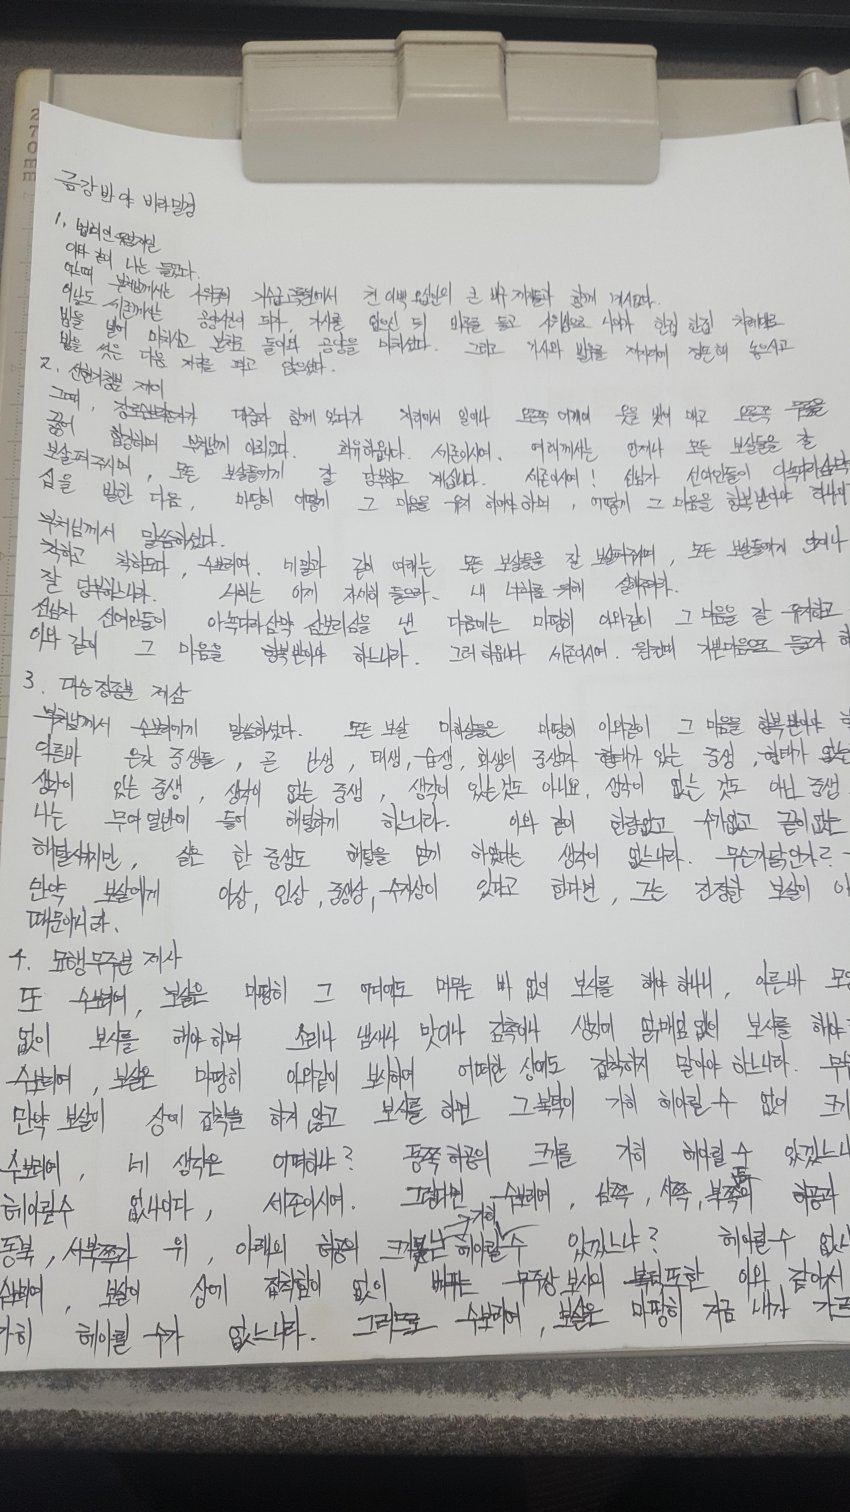 금강반야 바라밀경
1. 법회인유분제일
이와 같이 나는 들었다.
어느때 부처님께서는 사위국의 기수급고독원에서 천 이백 오십인의 큰 비구 제자들과 함께 계시었다.
이날도 세존께서는 공양시간이 되자, 가사를 입으신 뒤 바루를 들고 사위성으로 나아가 한집 한집 차례대로
밥을 빌어 마치시고 본처로 돌아와 공양을 마치셨다. 그리고 가사와 발우를 제자리에 정돈해 놓으시고
발을 씻은 다음 자리를 펴고 앉으셨다.
2. 선현기청분 제이
그때, 장로수보리가 대중과 함께 있다가 자리에서 일어나 오른쪽 어깨에 옷을 벗어 매고 오른쪽 무릎을
꿇어 합장하며 부처님께 아뢰었다. 희유하옵니다. 세존이시여. 여래께서는 언제나 모든 보살들을 잘
보살펴주시며, 모든 보살들에게 잘 당부하고 계십니다. 세존이시여! 선남자 선여인들이 아뇩다라삼먁
심을 발한 다음, 마땅히 어떻게 그 마음을 유지 하여야 하며, 어떻게 그 마음을 항복 받아야
부처님께서 말씀하셨다.
착하고 착하도다, 수보리여. 네말과 같이 여래는 모든 보살들을 잘 보살펴주며, 모든 보살들에게 언제나
잘 당부하느니라. 너희는 이제 자세히 들으라. 내 너희를 위해 설해주리라.
선남자 선여인들이 아뇩다라삼먁 삼보리심을 낸 다음에는 마땅히 이와같이 그 마음을 잘 유지하고
이와 같이 그 마음을 항복받아야 하느니라. 그러하옵니다 세존이시여. 원컨대 기쁜마음으로 듣고자
3. 대승정종분 제삼
부처님께서 수보리에게 말씀하셨다. 모든 보살 마하살들은 마땅히 이와같이 그 마음을 항복받아야
이른바 온갖 중생들, 곧 난생, 태생, 습생, 화생의 중생과 형태가 있는 중생, 형태가 없는
생각이 있는 중생, 생각이 없는 중생, 생각이 있는것도 아니요, 생각이 없는 것도 아닌 중생.
나는 무여열반에 들어 해탈하게 하느니라. 이와 같이 한량없고 수가없고 끝이없는
해탈시키지만, 실은 한 중생도 해탈을 얻게 하였다는 생각이 없느니라. 무슨까닭인가?
만약 보살에게 아상, 인상, 중생상, 수자상이 있다고 한다면, 그는 진정한 보살이
때문이니라.
4. 묘행무주분 제사
또 수보리여, 보살은 마땅히 그 어디에도 머무는 바 없이 보시를 해야 하나니, 이른바
없이 보시를 해야 하며 소리나 냄새나 맛이나 감촉이나 생각에 얽매임 없이 보시를 해야
수보리여, 보살은 마땅히 이와같이 보시하여 어떠한 상에도 집착하지 말아야 하느니라.
만약 보살이 상에 집착을 하지 않고 보시를 하면 그복덕이 가히 헤아릴 수 없이
수보리여, 네 생각은 어떠하냐? 동쪽 허공의 크기를 가히 헤아릴 수 있겠느냐
헤아릴수 없나이다, 세존이시여. 그렇다면 수보리여, 남쪽, 서쪽, 북쪽의 허공과
동북, 서북쪽과 위, 아래의 허공의 크기를 가히 헤아릴 수 있겠느냐? 헤아릴 수
수보리여, 보살이 상에 집착함이 없이 베푸는 무주상 보시의 복덕또한 이와 같아서
가히 헤아릴 수가 없느니라. 그러므로 수보리여, 보살은 마땅히 지금 내가